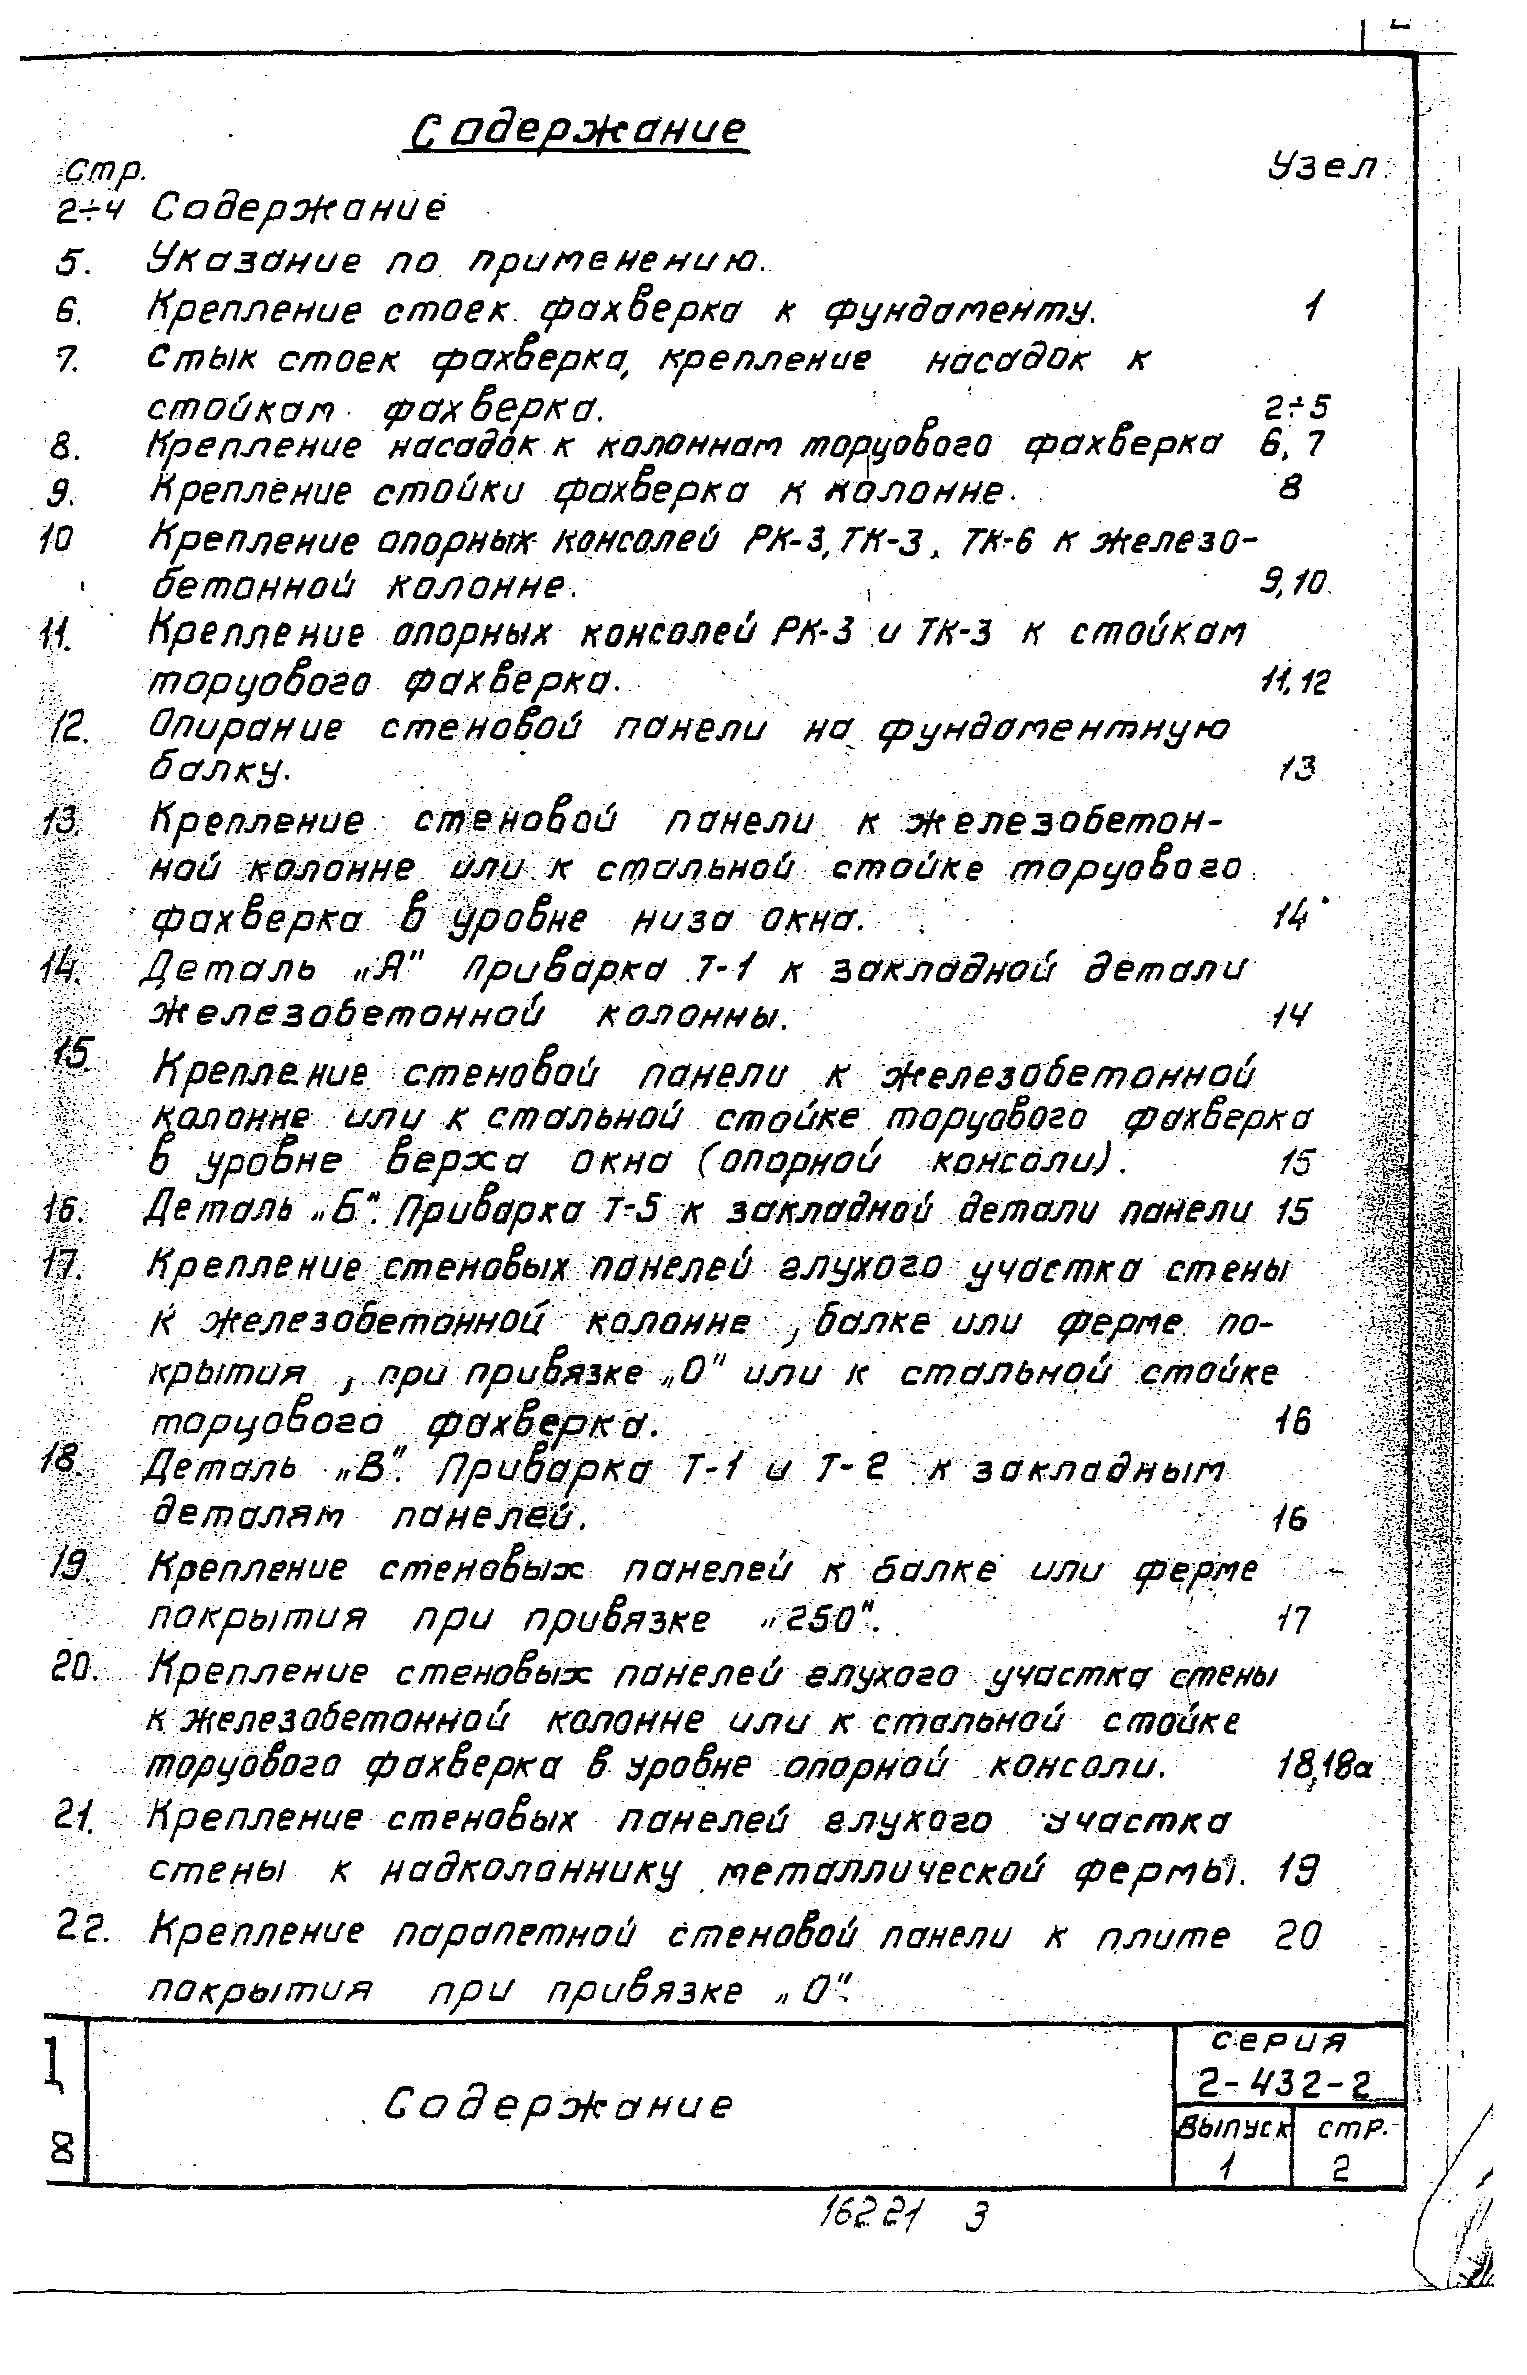 Содержание
Стр. Узел
2÷4 Содержание
5. Указание по применению.
6. Крепление стоек фахверка к фундаменту. 1
7. Стык стоек фахверка, крепление насадок к
стойкам фахверка. 2÷5
8. Крепление насадок к колоннам торцового фахверка 6, 7
9. Крепление стойки фахверка к колонне. 8
10 Крепление опорных консолей РК-3, ТК-3, ТК-6 к железо-
бетонной колонне. 9,10
11. Крепление опорных консолей РК-3 и ТК-3 к стойкам
торцового фахверка. 11,12
12. Опирание стеновой панели на фундаментную
балку. 13
13. Крепление стеновой панели к железобетон-
ной колонне или к стальной стойке торцового
фахверка в уровне низа окна. 14
14. Деталь „А" Приварка Т-1 к закладной детали
железобетонной колонны. 14
15. Крепление стеновой панели к железобетонной
колонне или к стальной стойке торцового фахверка
в уровне верха окна (опорной консоли). 15
16. Деталь „Б". Приварка Т-5 к закладной детали панели 15
17. Крепление стеновых панелей глухого участка стены
к железобетонной колонне, балке или ферме по-
крытия, при привязке „0" или к стальной стойке
торцового фахверка. 16
18. Деталь „В". Приварка Т-1 и Т-2 к закладным
деталям панелей. 16
19. Крепление стеновых панелей к балке или ферме
покрытия при привязке „250". 17
20. Крепление стеновых панелей глухого участка стены
к железобетонной колонне или к стальной стойке
торцового фахверка в уровне опорной консоли. 18,18а
21. Крепление стеновых панелей глухого участка
стены к надколоннику металлической фермы. 19
22. Крепление парапетной стеновой панели к плите 20
покрытия при привязке „0".
Содержание
серия
2-432-2
выпуск стр.
1 2
16221 3